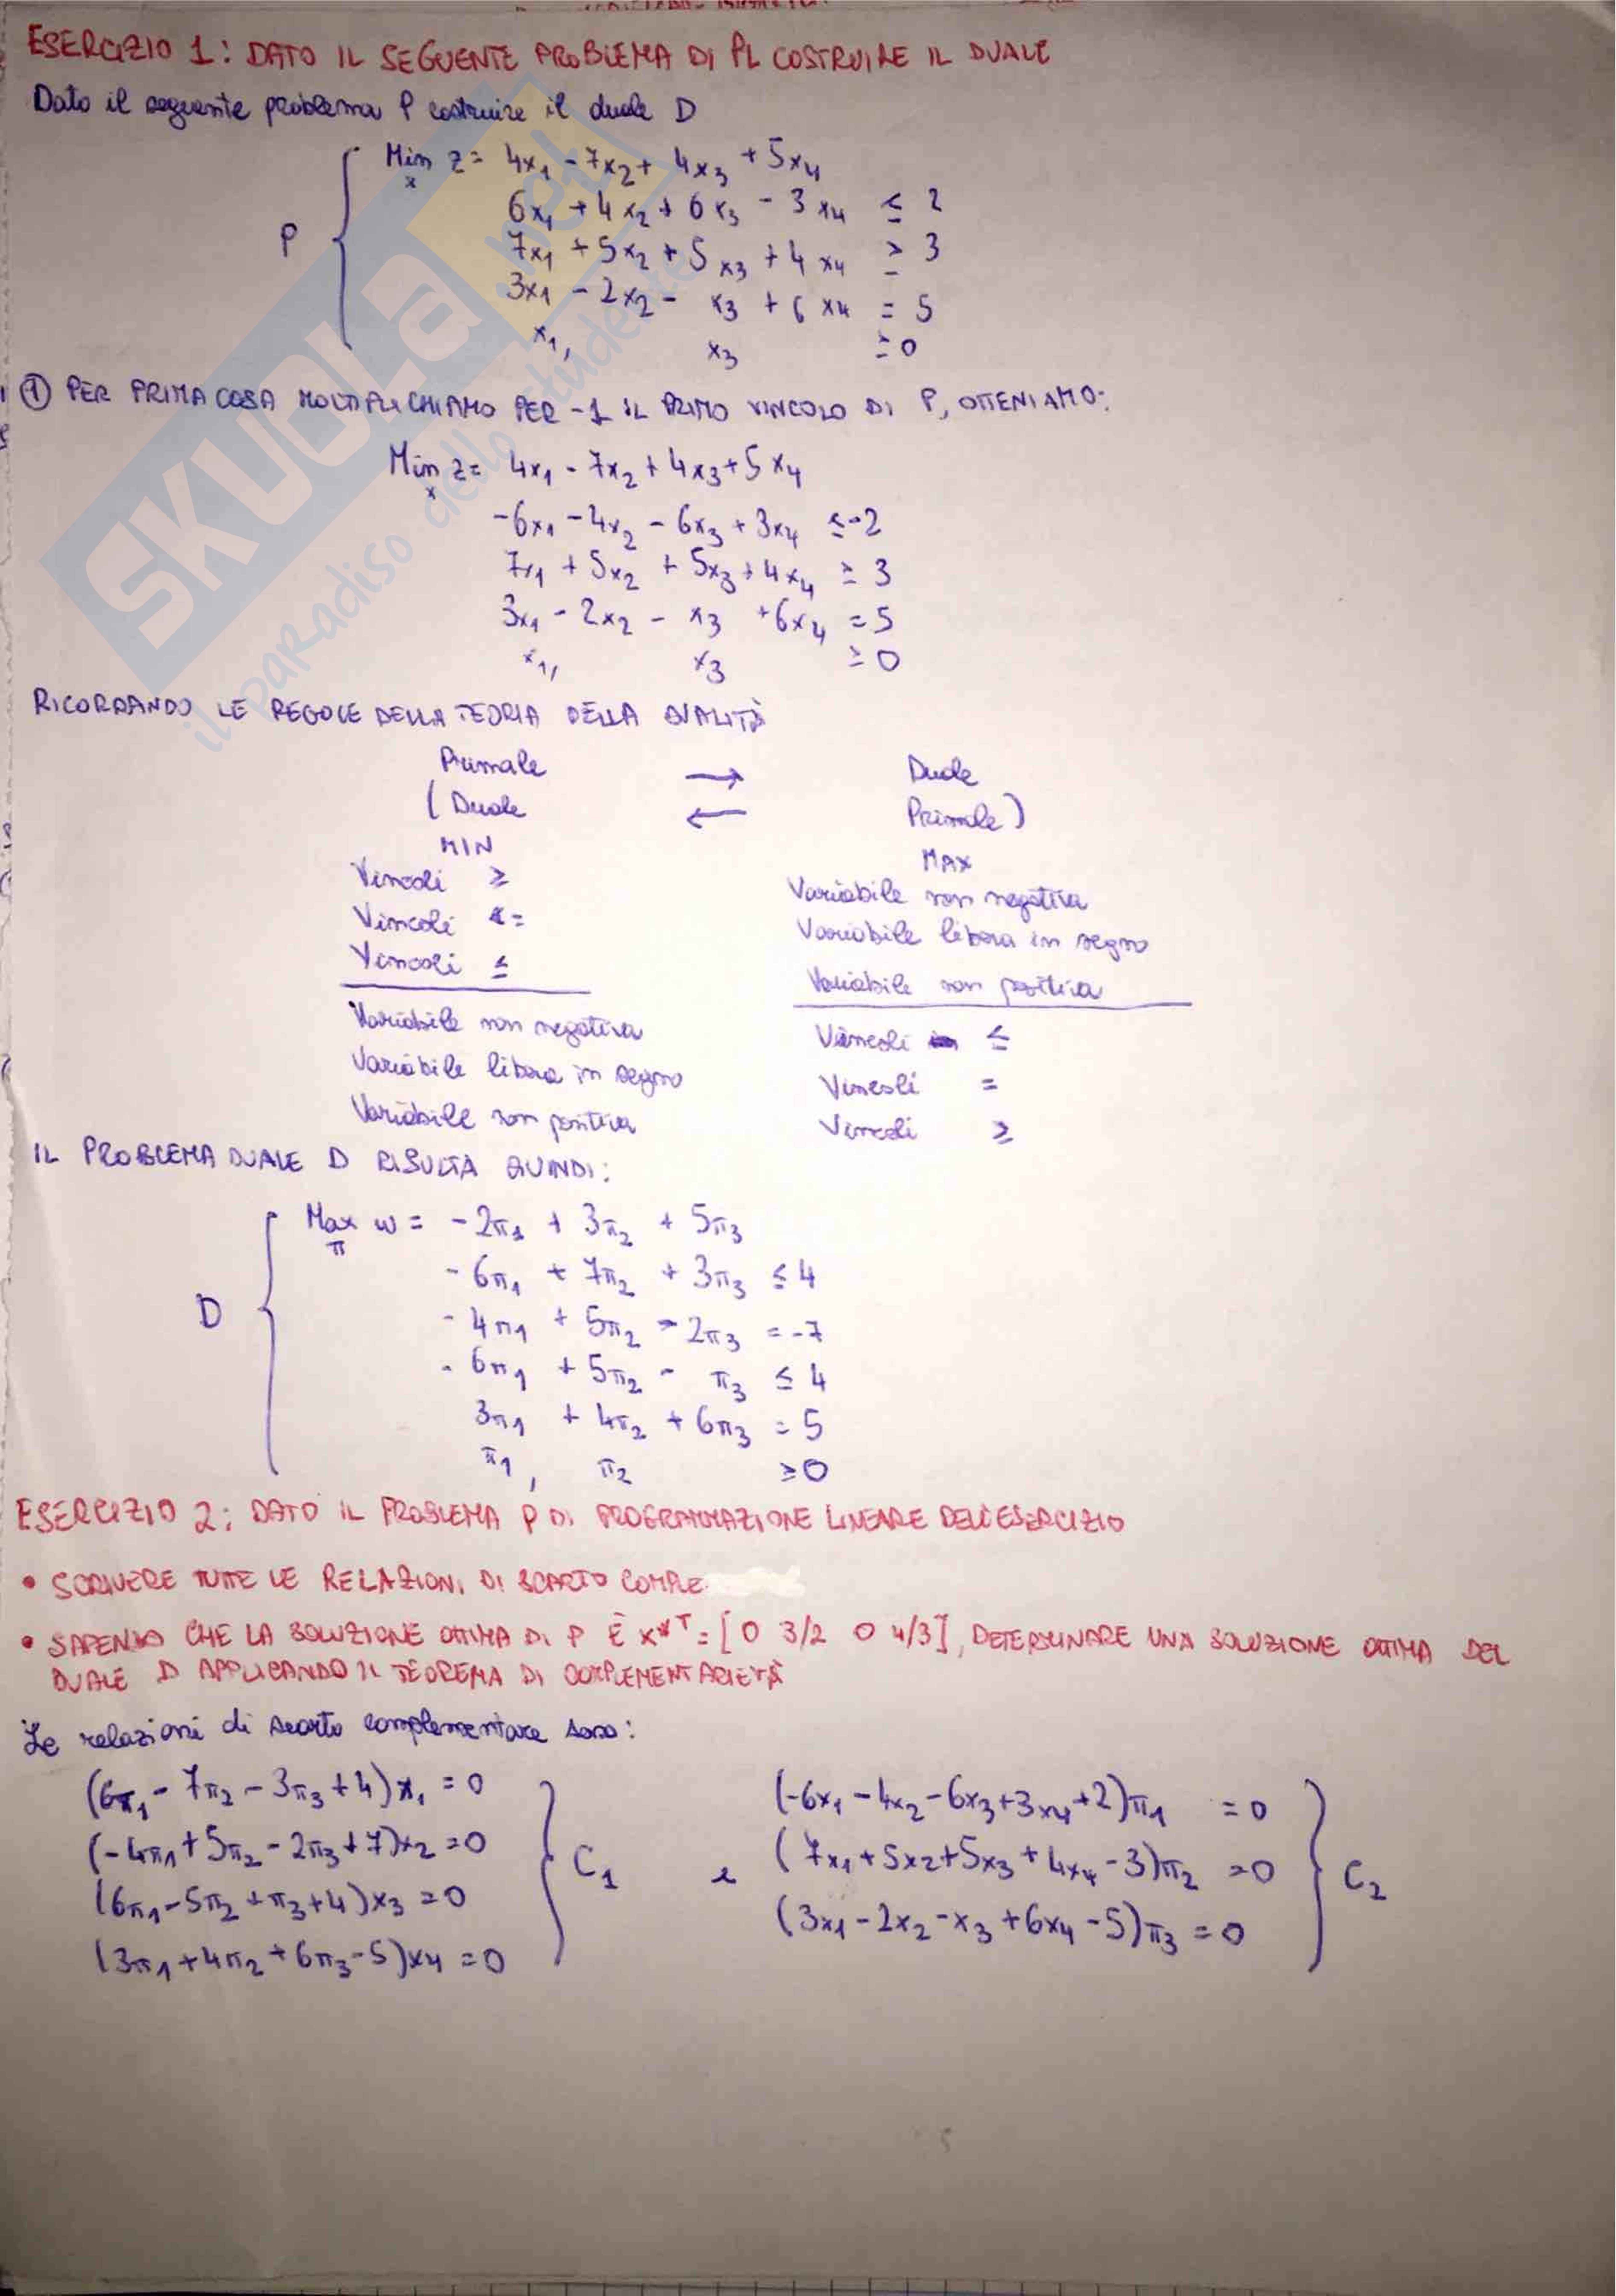 ESERCIZIO 1: DATO IL SEGUENTE PROBLEMA DI PL COSTRUIRE IL DUALE
Dato il seguente problema P costruire il duale D
P { Min z = 4x₁ - 7x₂ + 4x₃ + 5x₄
x
6x₁ + 4x₂ + 6x₃ - 3x₄ ≤ 2
7x₁ + 5x₂ + 5x₃ + 4x₄ ≥ 3
3x₁ - 2x₂ - x₃ + 6x₄ = 5
x₁, x₃ ≥ 0
① PER PRIMA COSA MOLTIPLICHIAMO PER -1 IL PRIMO VINCOLO DI P, OTTENIAMO:
Min z = 4x₁ - 7x₂ + 4x₃ + 5x₄
x
-6x₁ - 4x₂ - 6x₃ + 3x₄ ≤ -2
7x₁ + 5x₂ + 5x₃ + 4x₄ ≥ 3
3x₁ - 2x₂ - x₃ + 6x₄ = 5
x₁, x₃ ≥ 0
RICORDANDO LE REGOLE DELLA TEORIA DELLA DUALITÀ
Primale → Duale
(Duale ← Primale)
MIN MAX
Vincoli ≥ Variabile non negativa
Vincoli = Variabile libera in segno
Vincoli ≤ Variabile non positiva
Variabile non negativa Vincoli ≤
Variabile libera in segno Vincoli =
Variabile non positiva Vincoli ≥
IL PROBLEMA DUALE D RISULTA QUINDI:
D { Max w = -2π₁ + 3π₂ + 5π₃
π
-6π₁ + 7π₂ + 3π₃ ≤ 4
-4π₁ + 5π₂ - 2π₃ = -7
-6π₁ + 5π₂ - π₃ ≤ 4
3π₁ + 4π₂ + 6π₃ = 5
π₁, π₂ ≥ 0
ESERCIZIO 2: DATO IL PROBLEMA P DI PROGRAMMAZIONE LINEARE DELL'ESERCIZIO
• SCRIVERE TUTTE LE RELAZIONI DI SCARTO COMPLE
• SAPENDO CHE LA SOLUZIONE OTTIMA DI P È x*ᵀ = [0 3/2 0 4/3], DETERMINARE UNA SOLUZIONE OTTIMA DEL
DUALE D APPLICANDO IL TEOREMA DI COMPLEMENTARIETÀ
Le relazioni di scarto complementare sono:
(6π₁ - 7π₂ - 3π₃ + 4)x₁ = 0
(-4π₁ + 5π₂ - 2π₃ + 7)x₂ = 0
(6π₁ - 5π₂ + π₃ + 4)x₃ = 0
(3π₁ + 4π₂ + 6π₃ - 5)x₄ = 0
} C₁ e
(-6x₁ - 4x₂ - 6x₃ + 3x₄ + 2)π₁ = 0
(7x₁ + 5x₂ + 5x₃ + 4x₄ - 3)π₂ = 0
(3x₁ - 2x₂ - x₃ + 6x₄ - 5)π₃ = 0
} C₂
SKUOLA.net
il paradiso dello studente